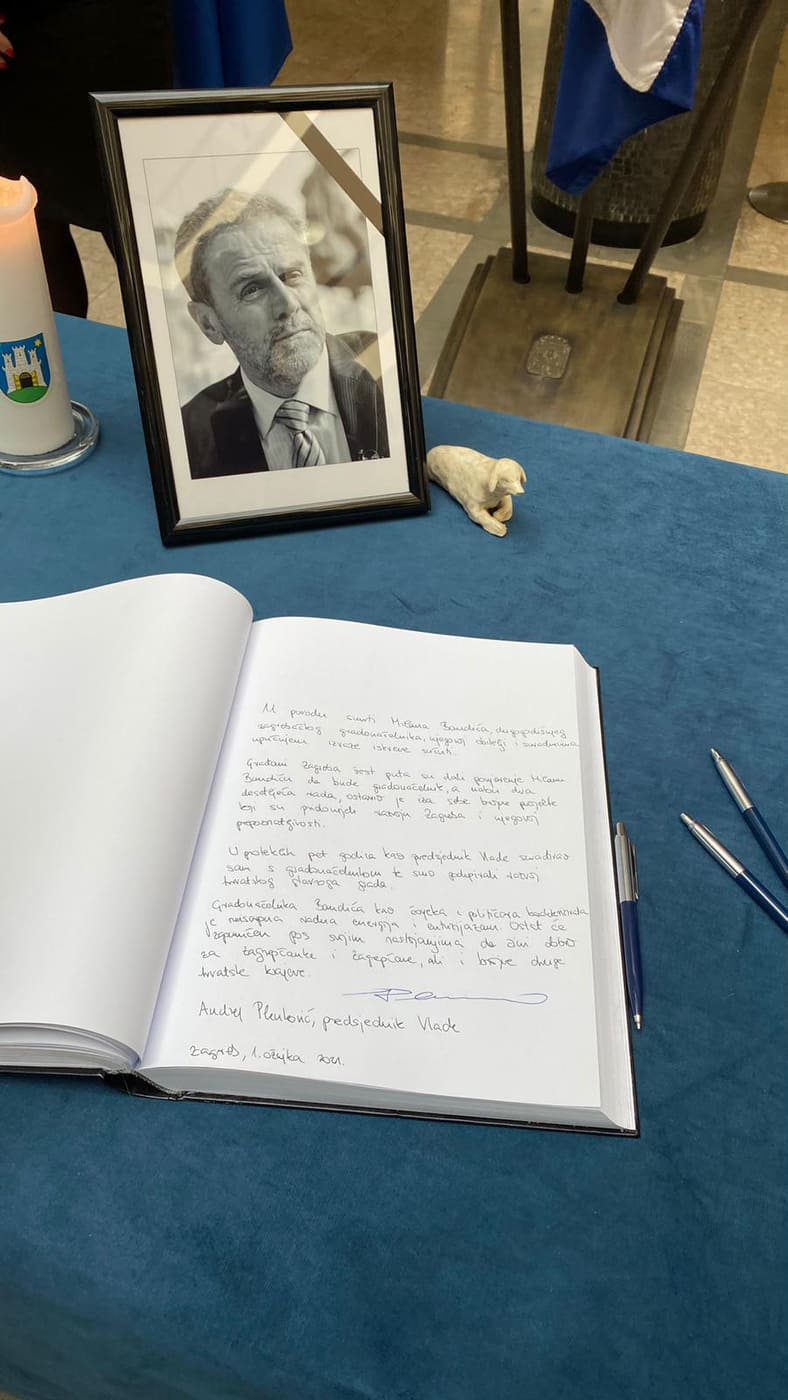 U povodu smrti Milana Bandića, dugogodišnjeg
zagrebačkog gradonačelnika, njegovoj obitelji i suradnicima
upućujem izraze iskrene sućuti.
Građani Zagreba šest puta su dali povjerenje Milanu
Bandiću da bude gradonačelnik, a nakon dva
desetljeća rada, ostavio je iza sebe brojne projekte
koji su pridonijeli razvoju Zagreba i njegovoj
prepoznatljivosti.
U proteklih pet godina kao predsjednik Vlade surađivao
sam s gradonačelnikom te smo podupirali razvoj
hrvatskog glavnoga grada.
Gradonačelnika Bandića kao čovjeka i političara
je neiscrpna radna energija i entuzijazam. Ostat će
zapamćen po svojim nastojanjima da čini dobro
za Zagrepčanke i Zagrepčane, ali i brojne druge
hrvatske krajeve.
Andrej Plenković, predsjednik Vlade
Zagreb, 1. ožujka 2021.